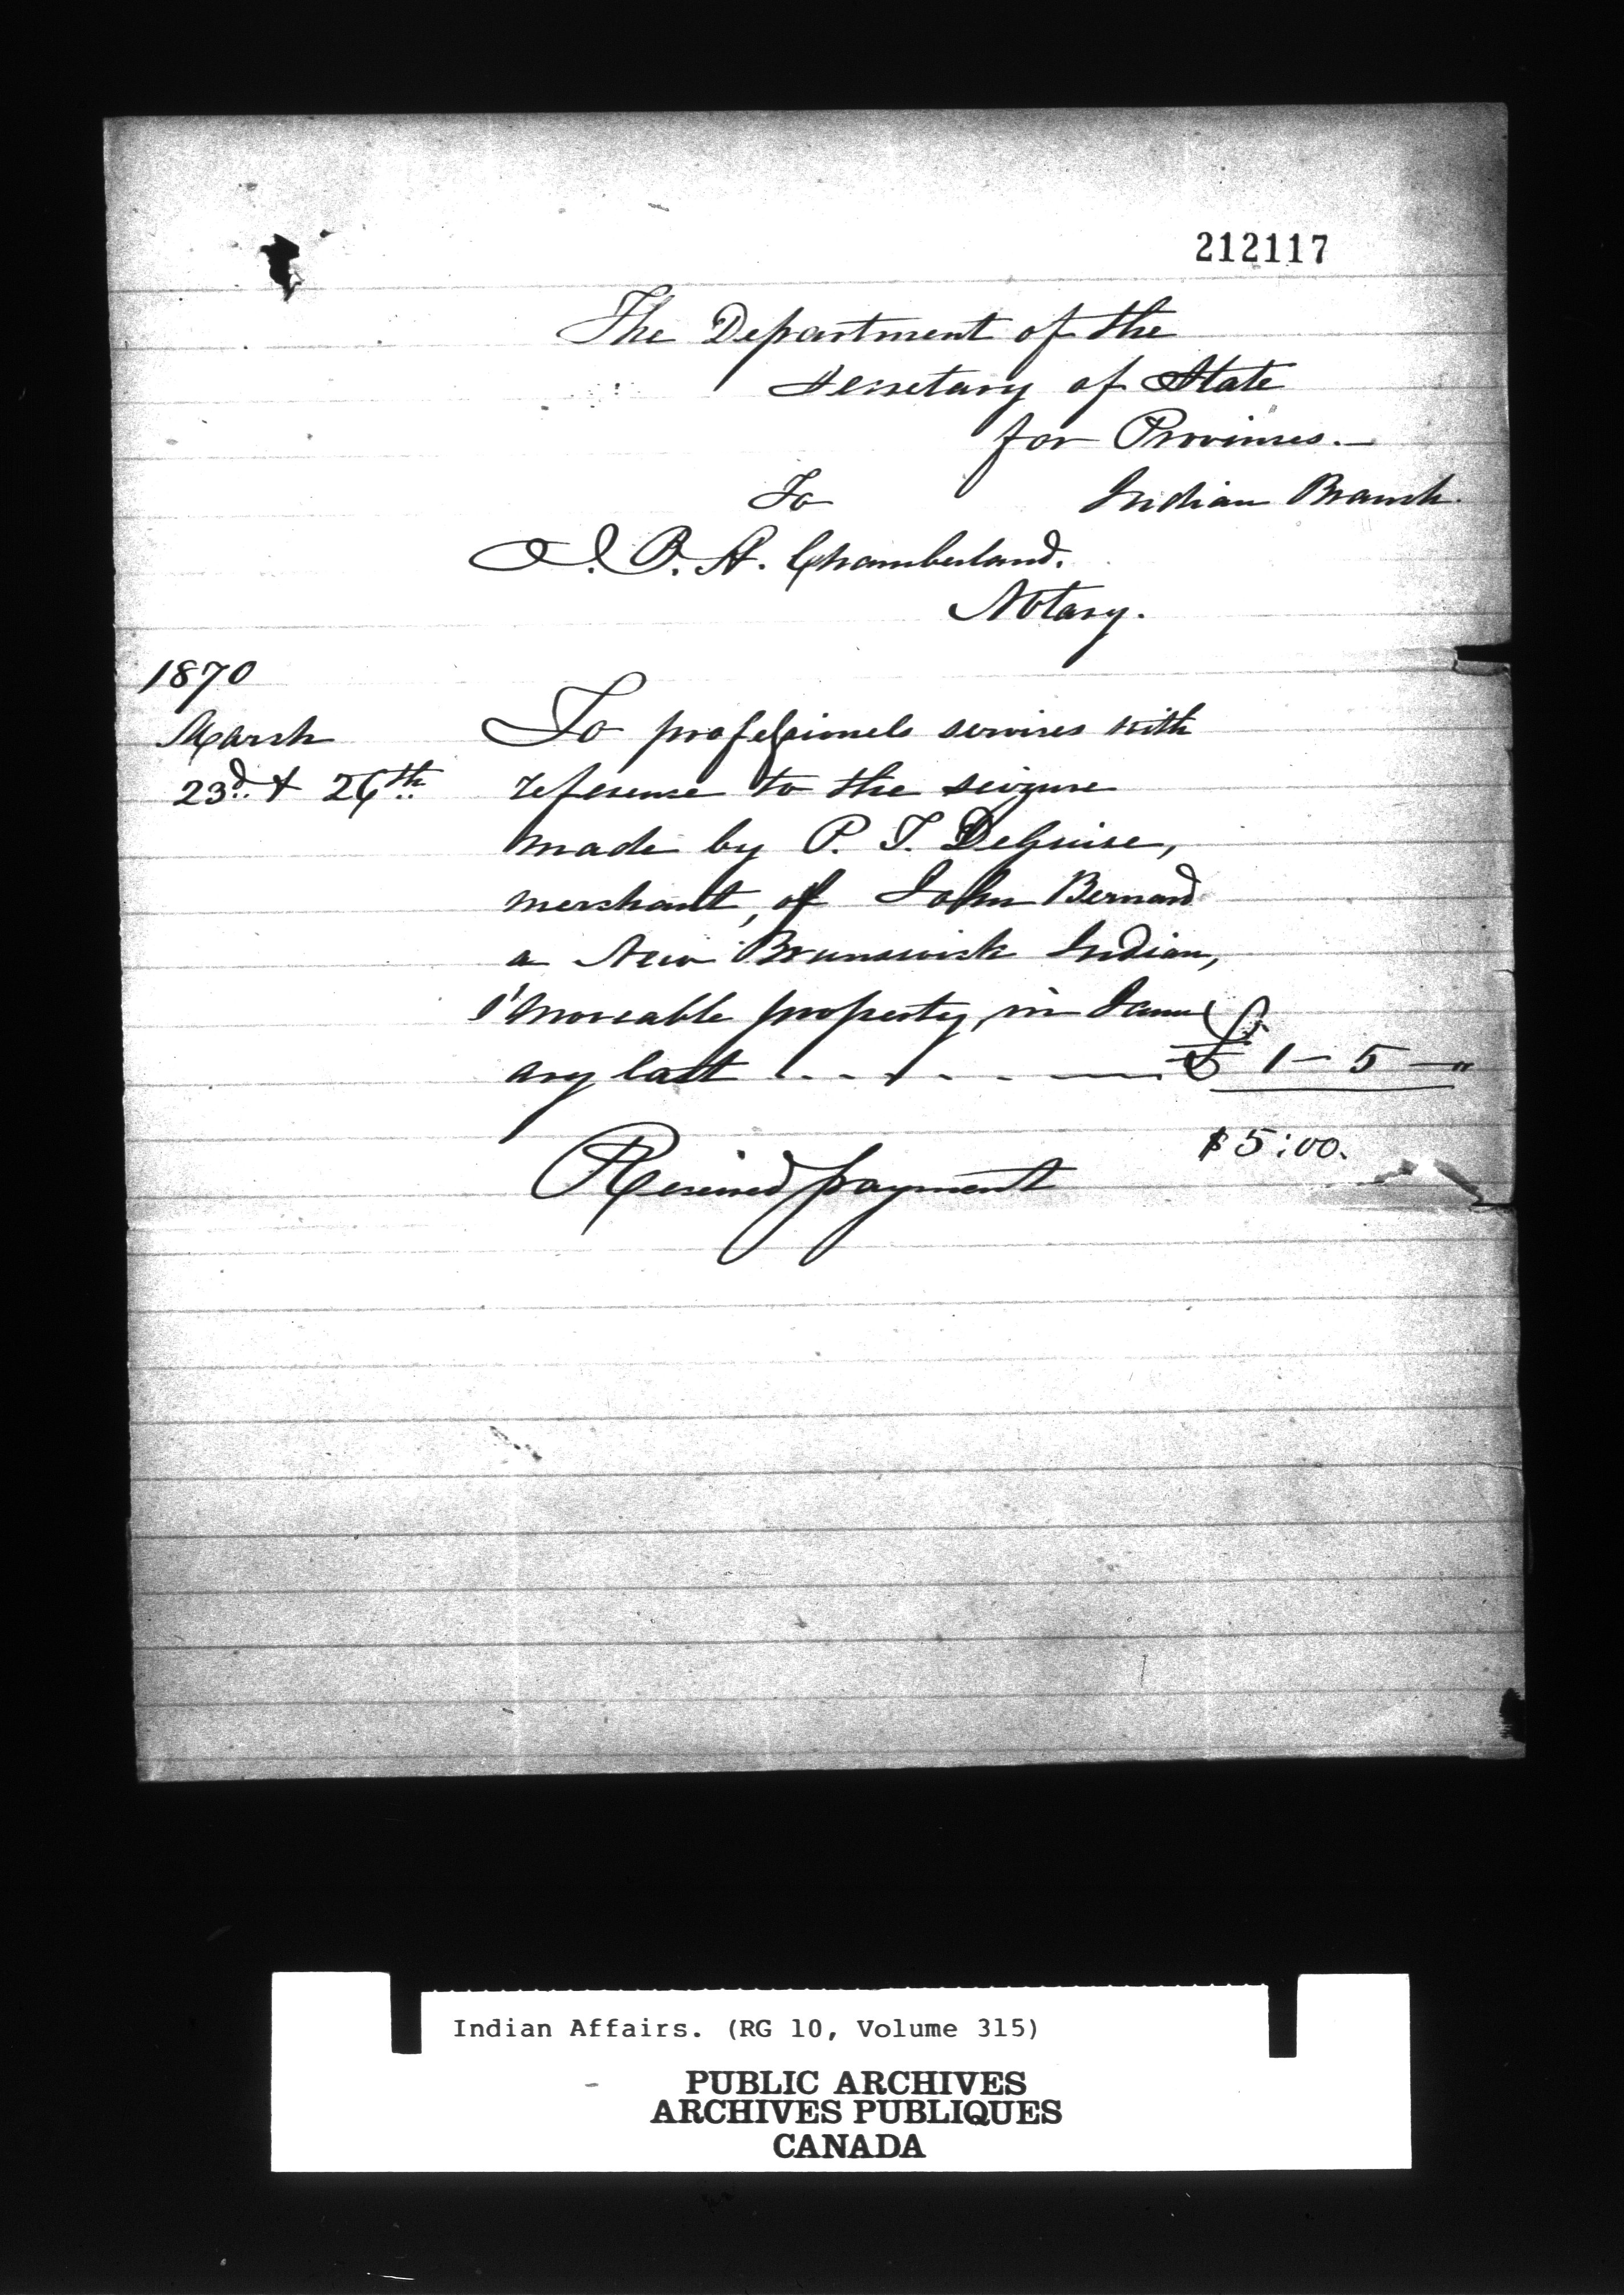 212117
The Department of the
Secretary of State
for Provinces.—
To Indian Branch.
J. B. A. Chamberland.
Notary.
1870
March To professionels services with
23d. & 26th. reference to the seizure
made by P. T. DeGuise,
merchant, of John Bernard
a New Brunswick Indian,
s' moveable property, in Janu
ary last . . . . . . — £ 1 – 5 – "
$5:00.
Received payment
Indian Affairs. (RG 10, Volume 315)
PUBLIC ARCHIVES
ARCHIVES PUBLIQUES
CANADA